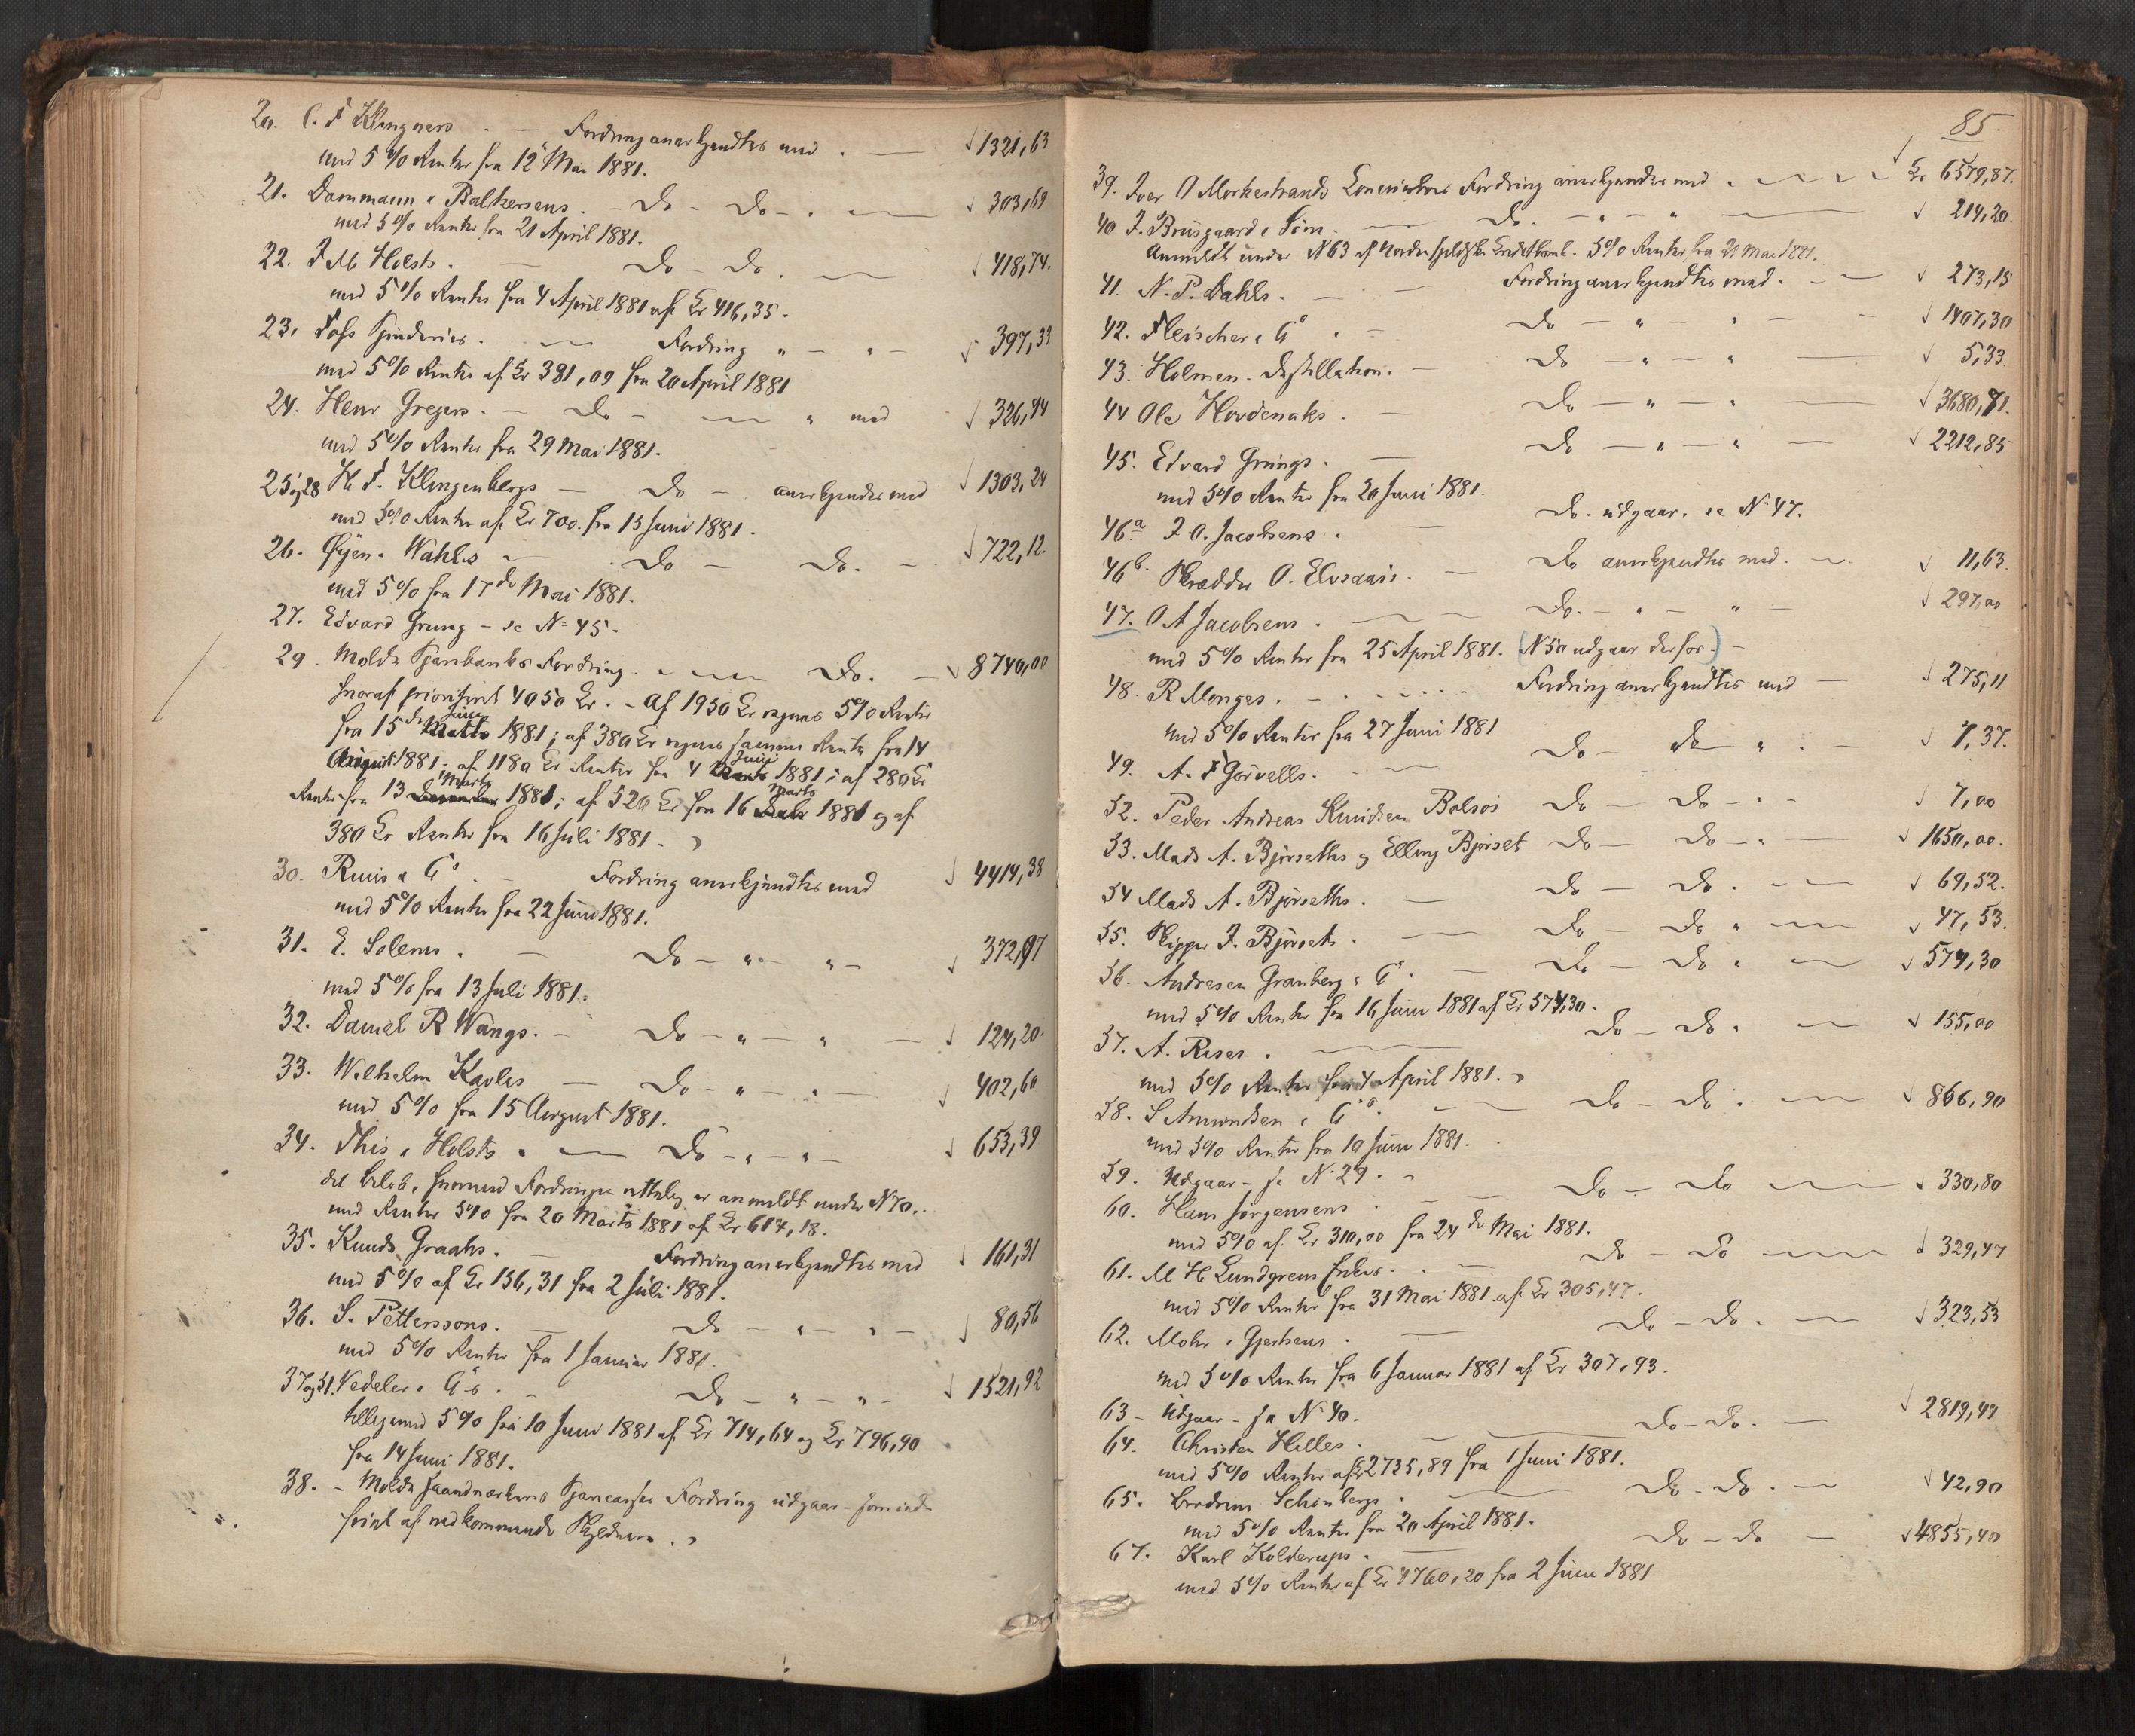 20. C. F Klingners . — Fordring anerkjendtes med . — 1321,63
med 5 % Renter fra 12 Mai 1881.
21. Dammann & Balkersens. - Do - Do - . — 303,69
med 5 % Renter fra 21 April 1881.
22. F M Holsts . — Do - Do . — 418,74.
med 5 % Renter fra 4 April 1881 af Kr 416,35.
23. Foss Spinderies . — Fordring " — " — 397,33
med 5 % Renter af Kr 391,09 fra 20 April 1881
24. Henr Gregers. — Do — " med 326,94
med 5 % Renter fra 29 Mai 1881.
25 og 28 H. F. Klingenbergs — Do — anerkjendes med 1303,24
med 5 % Renter af Kr 700. fra 15 Juni 1881.
26. Øyen & Wahls — Do — Do. - 722,12.
med 5 % fra 17de Mai 1881.
27. Edvard Grung - se No 45.
29. Molde Sparebanks Fordring . — Do. — 8740,00
hvoraf prioriteret 4050 Kr. - Af 1950 Kr regnes 5 % Renter
fra 15de Juni 1881; af 380 Kr regnes samme Rente fra 14
August 1881; af 1180 Kr Renter fra 4 Juni 1881; af 280 Kr
Renter fra 13 Marts 1881; af 520 Kr fra 16 Marts 1881 og af
380 Kr Renter fra 16 Juli 1881.
30. Ruus & Co . — Fordring anerkjendtes med 4414,38
med 5 % Renter fra 22 Juni 1881.
31. E. Solems . — Do — " — " — 372,97
med 5 % fra 13 Juli 1881.
32. Daniel R Wangs. — Do — " — " — 124,20.
33. Wilhelm Kavles — Do — " — . — 402,60
med 5 % fra 15 August 1881.
34. This & Holsts . — Do — " — " — 653,39
det Beløb, hvormed Fordringen rettelig er anmeldt under No 70.
med Renter 5 % fra 20 Marts 1881 af Kr 614,18.
35. Knuds Graahs. — Fordring anerkjendtes med 161,31
med 5 % af Kr 156,31 fra 2 Juli 1881.
36. S. Petterssons. — Do — " — " — 80,56
med 5 % Renter fra 1 Januar 1881.
37 og 51. Vedeler & Co's . — Do — " — " - 1521,92
tillegmed 5 % fra 10 Juni 1881 af Kr 714,64 og Kr 796,90
fra 14 Juni 1881.
38. - Molde Haandværkeres Sparecasses Fordring udgaar - som ind-
friet af vedkommende Skyldnere.
85.
39. Iver O Morkestrands Concursboes Fordring anerkjendes med . — Kr 6579,87.
40 J. Brusgaard & Søn. — Do. — " — " — 214,20.
Anmeldt under No 63 af Nordenfjeldske Creditbank. 5 % Renter fra 21 Mai 1881.
41. N. P. Dahls. — Fordring anerkjendtes med. — 273,15
42. Fleischer & Co . — Do — " — " — 1407,30
43. Holmen. Destillation. — Do — " — " — 5,33
44 Ole Hovdenaks . — Do — " — " — 3680,71.
45. Edvard Grungs . — Do — " — " — 2212,85
med 5 % Renter fra 20 Juni 1881.
46a J O. Jacobsens . — Do. udgaar. se No 47.
46b. Skrædder O. Elvsaais. — Do anerkjendtes med. — 11,63.
47. O A Jacobsens . — Do. — " — " — 297,00
med 5 % Renter fra 25 April 1881. (No 50 udgaar derfor.) —
48. R Monges. — Fordring anerkjendtes med — 275,11
med 5 % Renter fra 27 Juni 1881
49. A. F Gørvells. — Do — Do " . — 7,37.
52. Peder Andreas Knudsen Bolsøi Do — Do — . - 7,00
53. Mads A. Bjørseths og Elling Bjørset Do — Do — . — 1650,00.
54 Mads A. Bjørseths . — Do — Do . — 69,52.
55. Skipper J. Bjørsets . — Do — Do " — 47,53.
56. Andresen Granberg & Co . — Do — Do " — 574,30
med 5 % Renter fra 16 Juni 1881 af Kr 574,30.
57. A. Roses . — Do — Do " — 155,00
med 5 % Renter fra 4 April 1881.
58. S Amundsen & Co. — Do — Do . — 866,90
med 5 % Renter fra 10 Juni 1881.
59. Udgaar - se No 29.
60. Hans Jørgensens . — Do — Do — 330,80
med 5 % af Kr 310,00 fra 24de Mai 1881.
61. M H Lundgrens Enkes . — Do — Do — 329,47
med 5 % Renter fra 31 Mai 1881 af Kr 305,47.
62. Mohr & Gjerhens . — Do — Do . — 323,53
med 5 % Renter fra 6 Januar 1881 af Kr 307,93.
63 - Udgaar - se No 40.
64. Christen Helles . — Do - Do . — 2819,44
med 5 % Renter af Kr 2735,89 fra 1 Juni 1881.
65. Brødrene Schønbergs . — Do - Do . — 42,90
med 5 % Renter fra 20 April 1881.
67. Karl Kolderups . — Do - Do — 4855,40
med 5 % Renter af Kr 4760,20 fra 2 Juni 1881